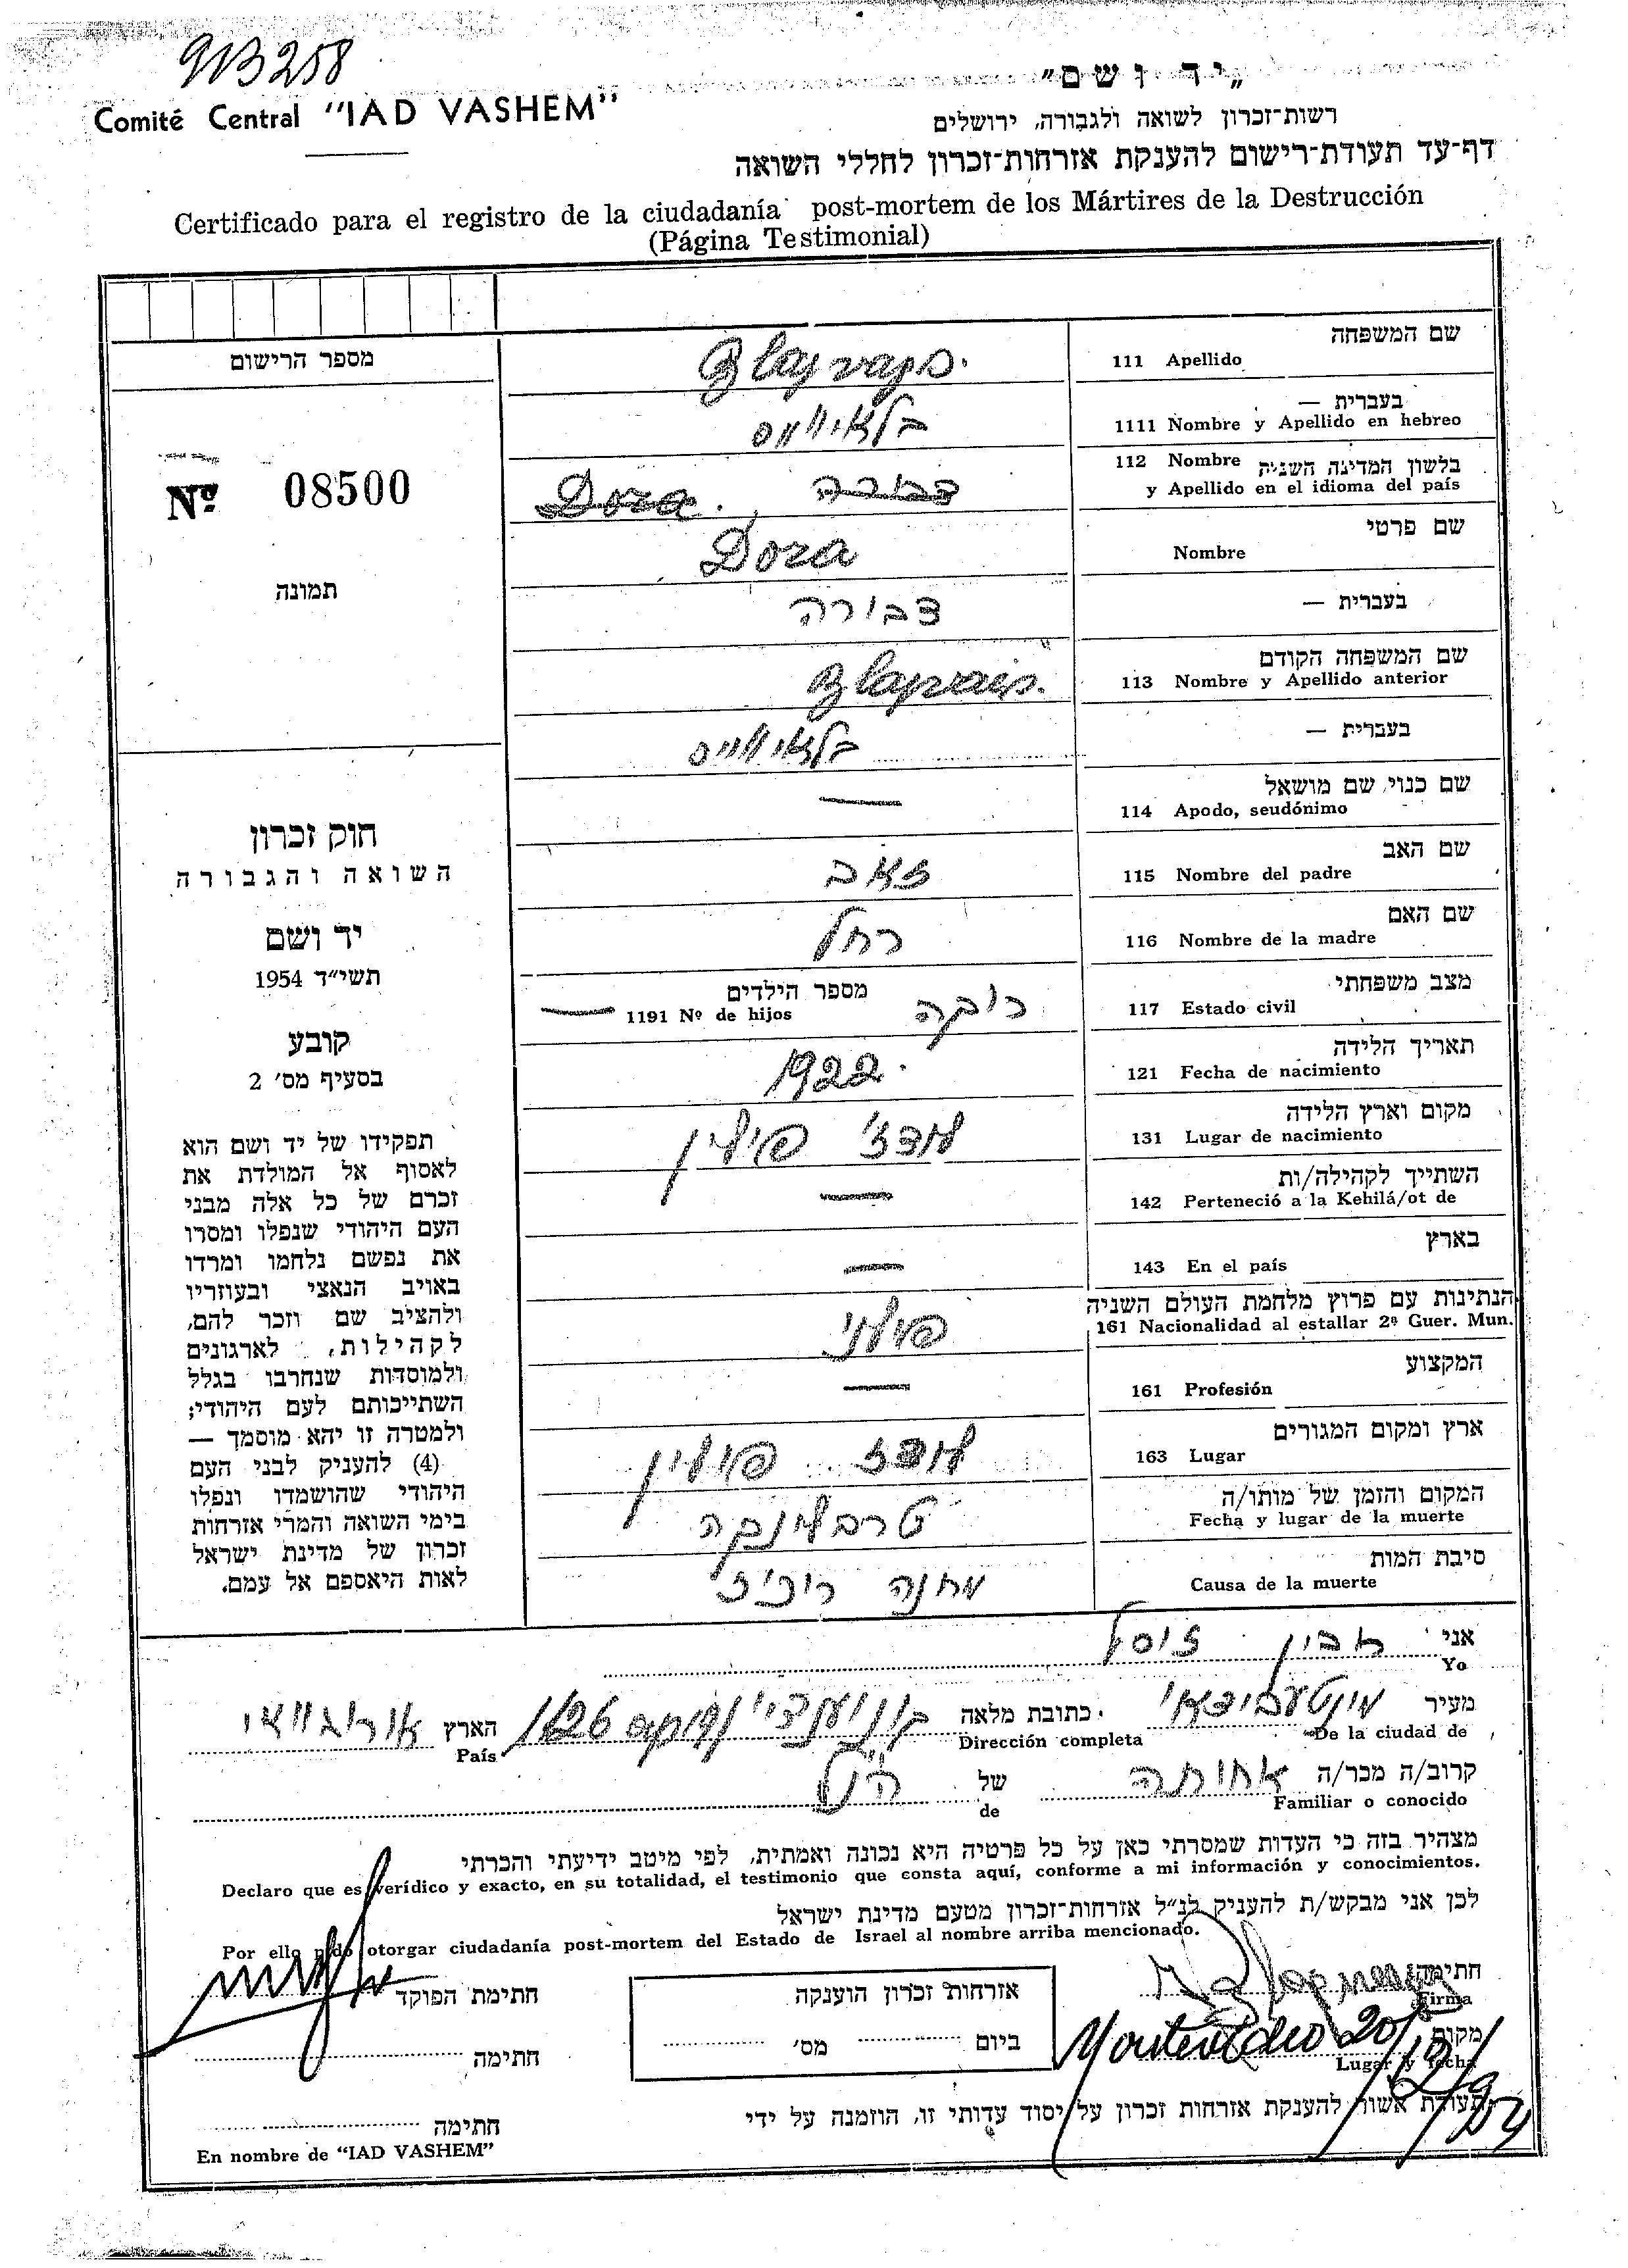 913258
Comité Central "IAD VASHEM"
„יד ושם"
רשות־זכרון לשואה ולגבורה, ירושלים
דף־עד תעודת־רישום להענקת אזרחות־זכרון לחללי השואה
Certificado para el registro de la ciudadanía post-mortem de los Mártires de la Destrucción
(Página Testimonial)
מספר הרישום
Nº 08500
תמונה
חוק זכרון
השואה והגבורה
יד ושם
תשי״ד 1954
קובע
בסעיף מס׳ 2
תפקידו של יד ושם הוא
לאסוף אל המולדת את
זכרם של כל אלה מבני
העם היהודי שנפלו ומסרו
את נפשם נלחמו ומרדו
באויב הנאצי ובעוזריו
ולהציב שם וזכר להם,
לקהילות, לארגונים
ולמוסדות שנחרבו בגלל
השתייכותם לעם היהודי;
ולמטרה זו יהא מוסמך —
(4) להעניק לבני העם
היהודי שהושמדו ונפלו
בימי השואה והמרי אזרחות
זכרון של מדינת ישראל
לאות היאספם אל עמם.
שם המשפחה
111 Apellido Blayvays.
בעברית —
1111 Nombre y Apellido en hebreo בלאיווייס
112 Nombre בלשון המדינה השניה
y Apellido en el idioma del país Dora. דבורה
שם פרטי
Nombre Dora
בעברית — דבורה
שם המשפחה הקודם
113 Nombre y Apellido anterior Blayvais.
בעברית — בלאיווייס
שם כנוי, שם מושאל
114 Apodo, seudónimo —
שם האב
115 Nombre del padre זאב
שם האם
116 Nombre de la madre רחל
מצב משפחתי
117 Estado civil רוקה
מספר הילדים
1191 Nº de hijos —
תאריך הלידה
121 Fecha de nacimiento 1922.
מקום וארץ הלידה
131 Lugar de nacimiento לודז׳ פולין
השתייך לקהילה/ות
142 Perteneció a la Kehilá/ot de —
בארץ
143 En el país —
הנתינות עם פרוץ מלחמת העולם השניה
161 Nacionalidad al estallar 2ª Guer. Mun. פולני
המקצוע
161 Profesión —
ארץ ומקום המגורים
163 Lugar לודז פולין
המקום והזמן של מותו/ה
Fecha y lugar de la muerte טרבלינקה
סיבת המות
Causa de la muerte מחנה ריכוז
אני
Yo
מעיר מונטעבידאו כתובת מלאה 1126 הארץ אורוגוואי
De la ciudad de Dirección completa País
קרוב/ה מכר/ה אחותה של הנ"ל
Familiar o conocido de
מצהיר בזה כי העדות שמסרתי כאן על כל פרטיה היא נכונה ואמתית, לפי מיטב ידיעתי והכרתי
Declaro que es verídico y exacto, en su totalidad, el testimonio que consta aquí, conforme a mi información y conocimientos.
לכן אני מבקש/ת להעניק לנ״ל אזרחות־זכרון מטעם מדינת ישראל
Por ello pido otorgar ciudadanía post-mortem del Estado de Israel al nombre arriba mencionado.
חתימה
Firma
מקום
Lugar y fecha Montevideo 20/12/954
אזרחות זכרון הוענקה
ביום מס׳
חתימת הפוקד
חתימה
תעודת אשור להענקת אזרחות זכרון על יסוד עדותי זו, הוזמנה על ידי
חתימה
En nombre de "IAD VASHEM"